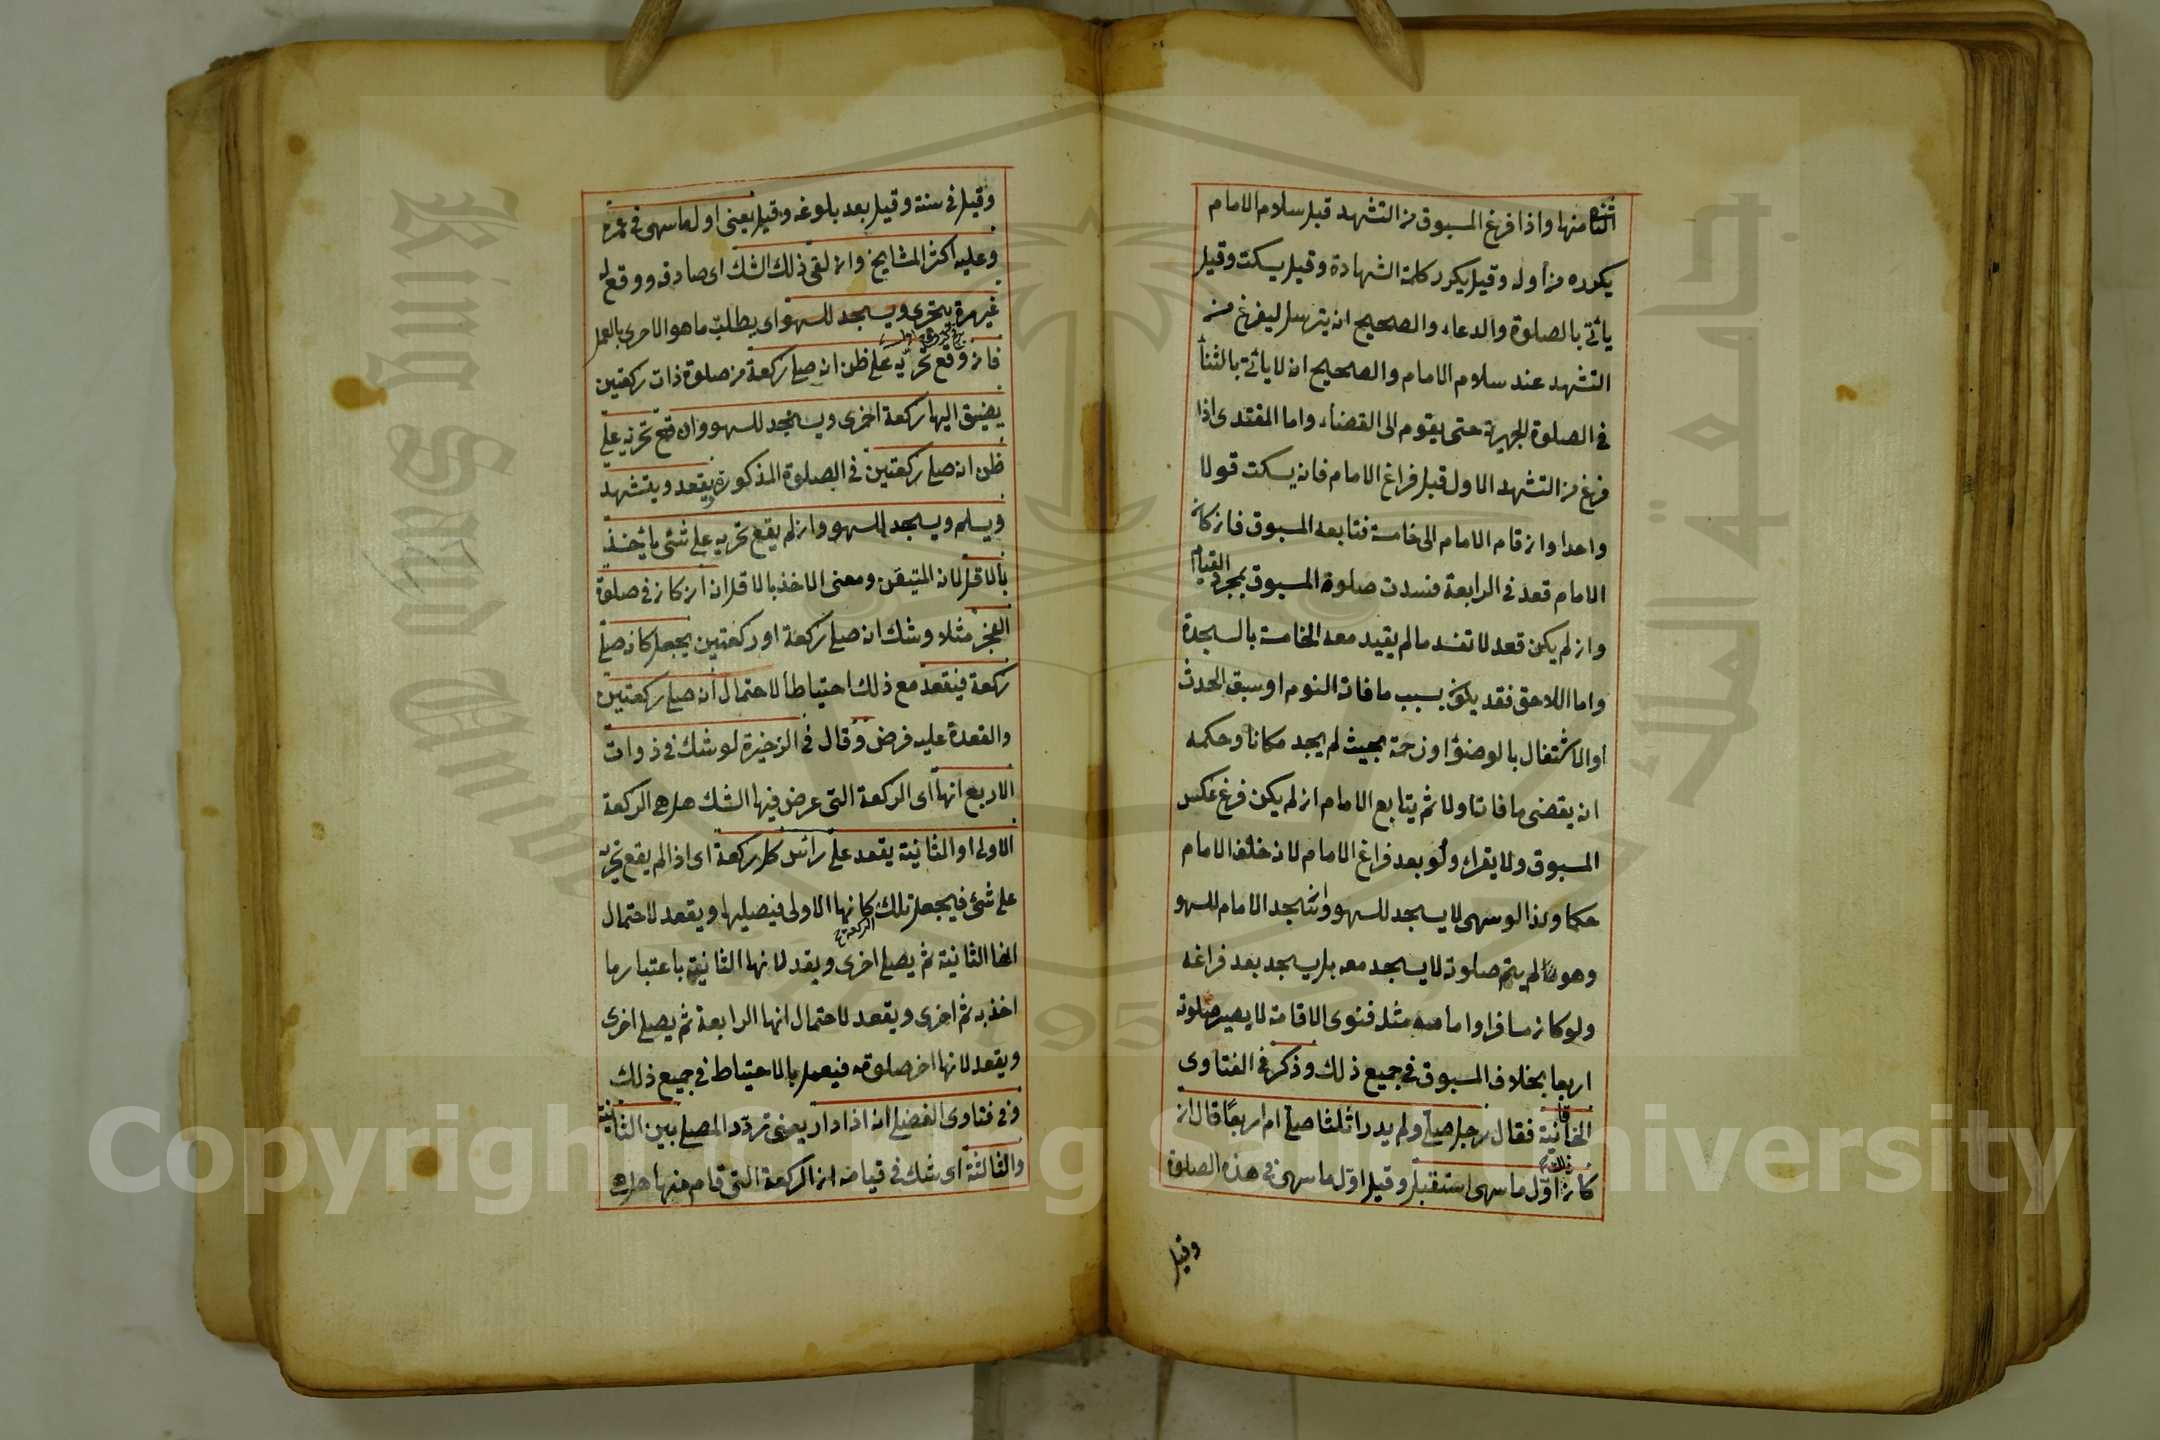 الثامنها واذا فرغ المسبوق من التشهد قبل سلام الامام
يكرره من أوله وقيل يكرر كلمة الشهادة وقيل يسكت وقيل
يأتي بالصلوة والدعاء والصحيح انه يترسل ليفرغ من
التشهد عند سلام الامام والصحيح انه لا يأتي بالثنأ
في الصلوة الجهرية حتى يقوم الى القضاء واما المقتدى اذا
فرغ من التشهد الاول قبل فراغ الامام فانه يسكت قولا
واحدا وان قام الامام الى خامسة فتابعه المسبوق فان كان
الامام قعد في الرابعة فسدت صلوة المسبوق بمجرد القيام
وان لم يكن قعد لا تفسد ما لم يقيد معه الخامسة بالسجدة
واما اللاحق فقد يكون بسبب ما فاته النوم او سبق الحدث
أو الاشتغال بالوضوأ او زحمة بحيث لم يجد مكانا وحكمه
انه يقضى ما فاته اولا ثم يتابع الامام ان لم يكن فرغ عكس
المسبوق ولا يقراء ولو بعد فراغ الامام لانه خلف الامام
حكما ولذا لو سهى لا يسجد للسهو وان سجد الامام للسهو
وهو لم يتم صلوته لا يسجد معه بل يسجد بعد فراغه
ولو كان مسافرا وامامه مثله فنوى الاقامة لا يصير صلوته
اربعا بخلاف المسبوق في جميع ذلك وذكر في الفتاوى
الخاقانية فقال رجل صلى ولم يدر اثلثا صلى ام اربعًا قال ان
كان ذلك اوّل ما سهى استقبل وقيل اوّل ما سهى في هذه الصلوة
وقيل
وقيل في سنته وقيل بعد بلوغه وقيل يعنى اول ما سهى في عمره
وعليه اكثر المشايخ وان لقى ذلك الشك اى صادفه ووقع له
غير مرة يتحرى ويسجد للسهو اى يطلب ما هو الاحرى بالعمل
فان وقع تحريه على ظن انه صلى ركعة من صلوة ذات ركعتين
يضيق اليها ركعة اخرى ويسجد للسهو وان وقع تحريه على
ظن انه صلى ركعتين في الصلوة المذكورة يقعد ويتشهد
ويسلم ويسجد للسهو وان لم يقع تحريه على شئ يأخذ
بالاقل لانه المتيقن ومعنى الاخذ بالاقل انه ان كان في صلوة
الفجر مثلا وشك انه صلى ركعة او ركعتين يجعل كانه صلى
ركعة فيقعد مع ذلك احتياطا لاحتمال انه صلى ركعتين
والقعدة عليه فرض وقال في الذخيرة لو شك في ذوات
الاربع انها اى الركعة التى عرض فيها الشك هل هى الركعة
الاولى او الثانية يقعد على رأس كل ركعة اى اذا لم يقع تحريه
على شئ فيجعل تلك الركعة كانها الاولى فيصليها ويقعد لاحتمال
انها الثانية ثم يصلى اخرى ويقعد لانها الثانية باعتبار ما
اخذ به ثم اخرى ويقعد لاحتمال انها الرابعة ثم يصلى اخرى
ويقعد لانها اخر صلوته فيعمل بالاحتياط في جميع ذلك
وفي فتاوى الفضلى انه اذا دار يعنى تردّد المصلى بين الثانية
والثالثة اى شك في قيامه ان الركعة التى قام منها هل هى
King Saud University
1957
Copyright © King Saud University